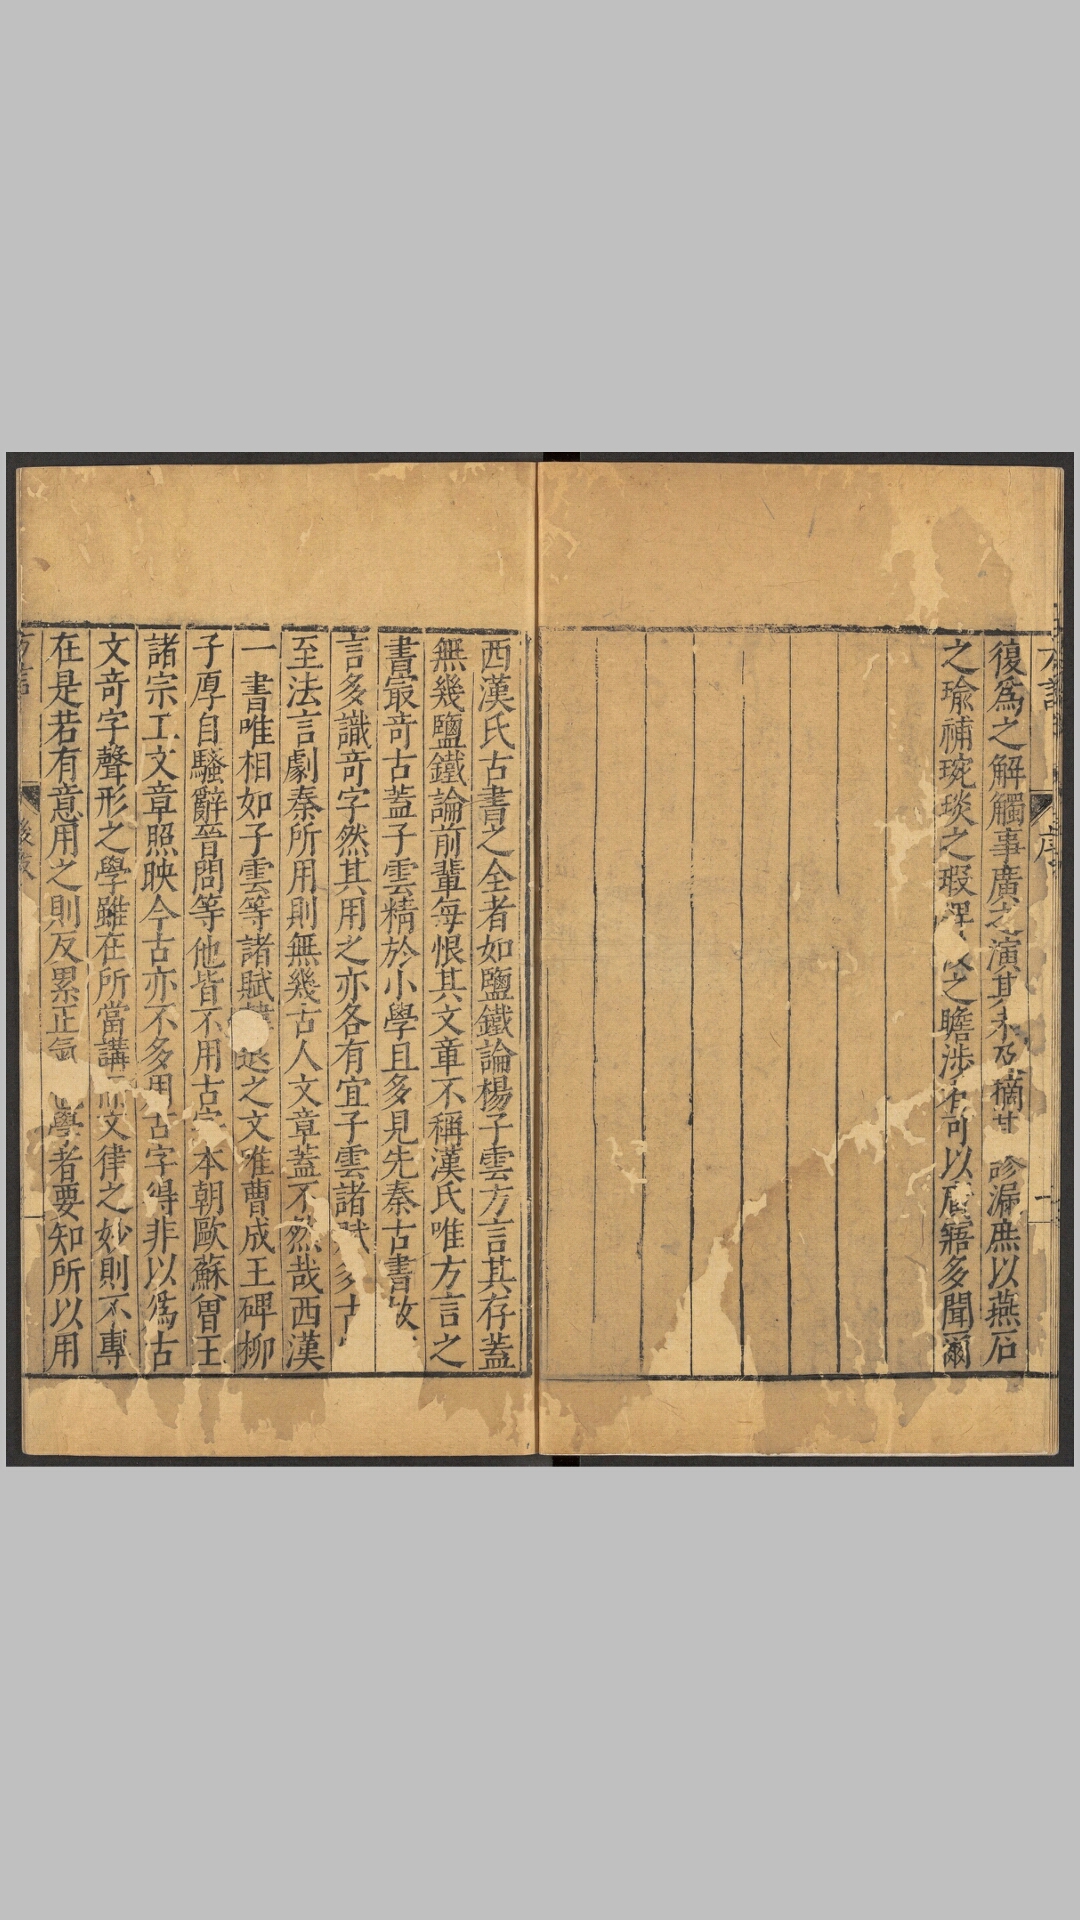 復爲之解觸事廣之演其未及摘其謬漏庶以燕石
之瑜補琬琰之瑕俾之瞻涉者可以廣寤多聞爾
西漢氏古書之全者如鹽鐵論楊子雲方言其存蓋
無幾鹽鐵論前輩每恨其文章不稱漢氏唯方言之
書㝡竒古蓋子雲精於小學且多見先秦古書故
言多識竒字然其用之亦各有宜子雲諸賦多古
至法言劇秦所用則無幾古人文章蓋不然哉西漢
一書唯相如子雲等諸賦韓退之文唯曹成王碑柳
子厚自騷辭晉問等他皆不用古字本朝歐蘇曾王
諸宗工文章照映今古亦不多用古字得非以爲古
文竒字聲形之學雖在所當講而文律之妙則不專
在是若有意用之則反累正氣學者要知所以用